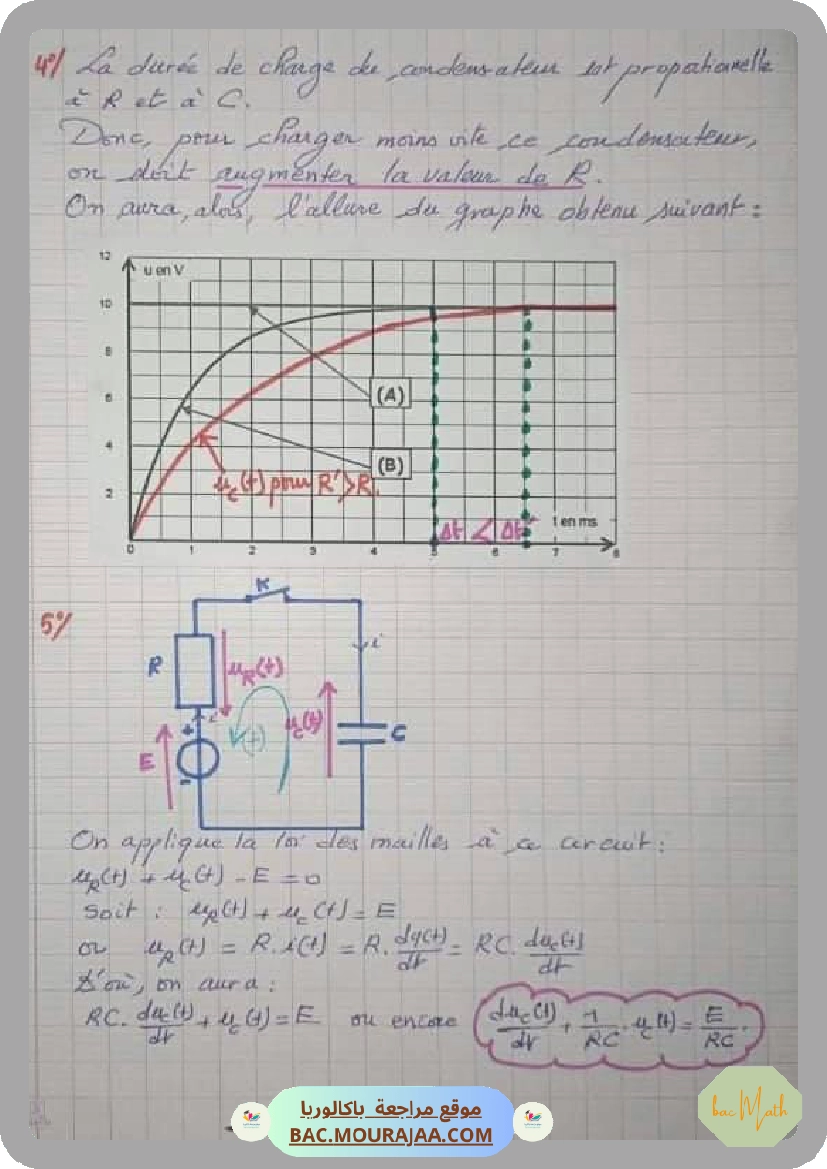 4°/ La durée de charge du condensateur est proportionnelle
à R et à C.
Donc, pour charger moins vite ce condensateur,
on doit augmenter la valeur de R.
On aura, alors, l'allure du graphe obtenu suivant :
12
u en V
10
8
6
4
2
(A)
(B)
uc(t) pour R' > R.
Δt < Δt'
t en ms
0 1 2 3 4 5 6 7 8
5°/
K
i
R
uR(t)
i
+
(+)
uc(t)
C
E
-
On applique la loi des mailles à ce circuit :
uR(t) + uc(t) - E = 0
Soit : uR(t) + uc(t) = E
or uR(t) = R.i(t) = R. dq(t)/dt = RC. duc(t)/dt
D'où, on aura :
RC. duc(t)/dt + uc(t) = E ou encore duc(t)/dt + 1/RC . uc(t) = E/RC .
موقع مراجعة باكالوريا
BAC.MOURAJAA.COM
bac Math